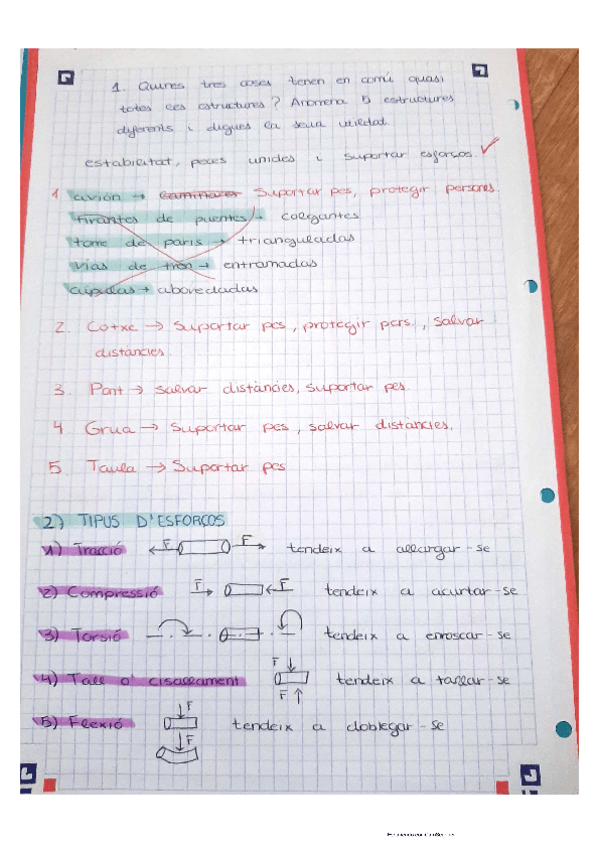 1. Quines tres coses tenen en comú quasi
totes les estructures? Anomena 5 estructures
diferents i digues la seua utilitat.
estabilitat, peces unides i suportar esforços. ✓
1 avión → caminar Suportar pes, protegir persones.
tirantes de puentes → colgantes
torre de paris → trianguladas
vías de tren → entramadas
cúpulas → abovedadas
2. Cotxe → Suportar pes, protegir pers., salvar
distàncies.
3. Pont → salvar distàncies, suportar pes.
4 Grua → suportar pes, salvar distàncies.
5. Taula → Suportar pes
2) TIPUS D'ESFORÇOS
1) Tracció F F tendeix a allargar-se
2) Compressió F F tendeix a acurtar-se
3) Torsió tendeix a enroscar-se
4) Tall o cisallament F F tendeix a tallar-se
5) Flexió F F tendeix a doblegar-se